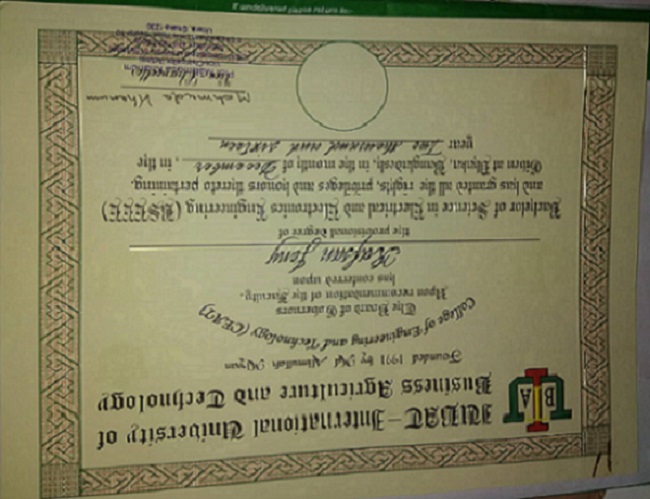 IUBAT–International University of
Business Agriculture and Technology
Founded 1991 by Md. Alimullah Miyan
College of Engineering and Technology (CEAT)
The Board of Governors
Upon recommendation of the Faculty,
has conferred upon
the provisional degree of
Bachelor of Science in Electrical and Electronics Engineering (BSEEE)
and has granted all the rights, privileges and honors thereto pertaining.
Given at Dhaka, Bangladesh, in the month of December, in the
year Two thousand and sixteen
Mahmuda Khanum